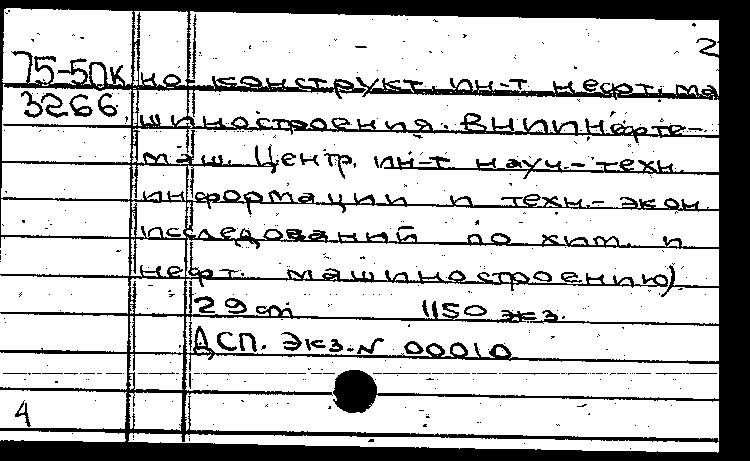 2
75-50к но-конструкт. ин-т нефт. ма
3266 шиностроения. ВНИИНефте-
маш. Центр. ин-т науч.-техн.
информации и техн.-экон.
исследований по хим. и
нефт. машиностроению)
29 см 1150 экз.
ДСП. Экз. N 00010
4